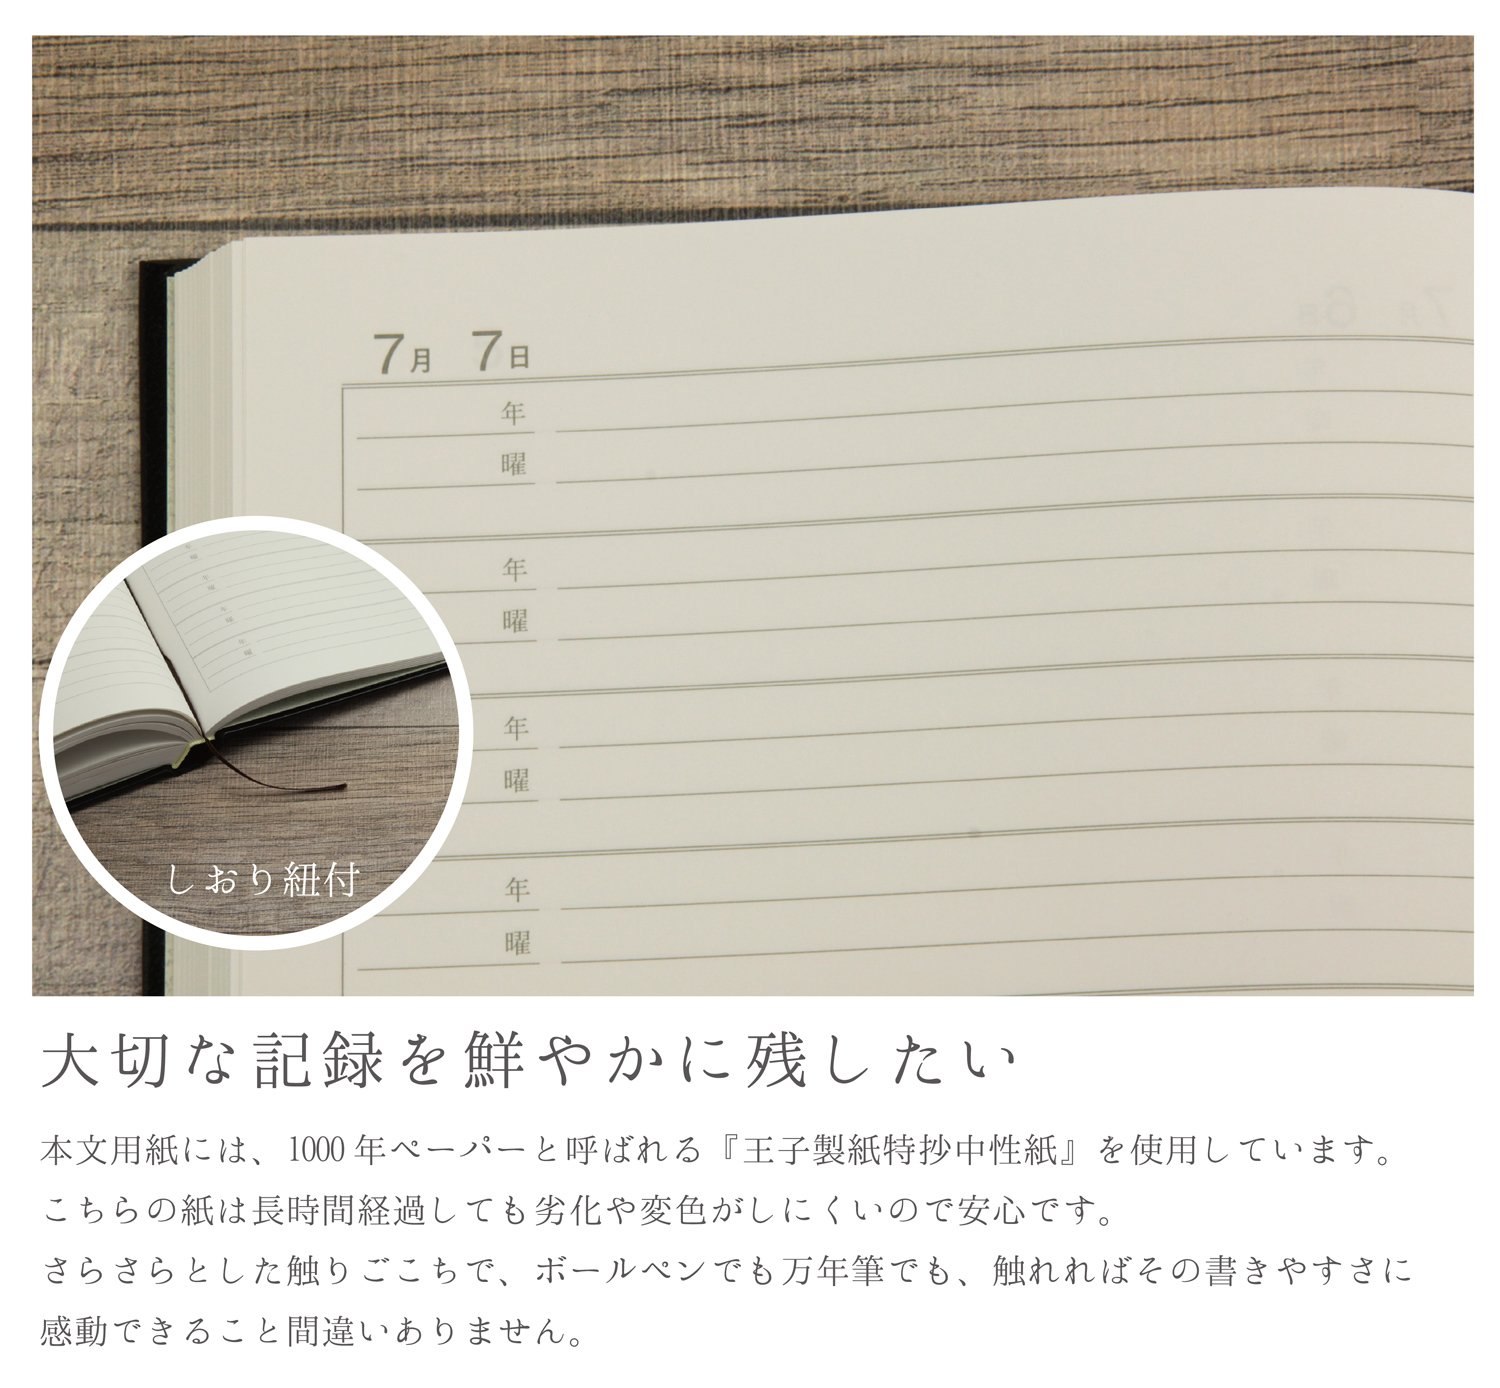 7月 7日
年
曜
年
曜
年
曜
年
曜
しおり紐付
大切な記録を鮮やかに残したい
本文用紙には、1000年ペーパーと呼ばれる『王子製紙特抄中性紙』を使用しています。
こちらの紙は長時間経過しても劣化や変色がしにくいので安心です。
さらさらとした触りごこちで、ボールペンでも万年筆でも、触れればその書きやすさに
感動できること間違いありません。